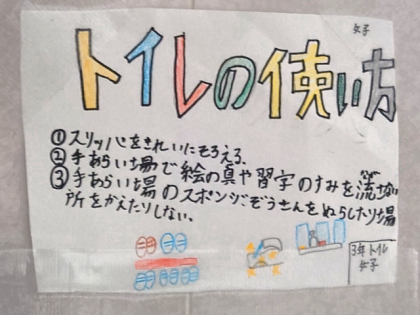 女子
トイレの使い方
①スリッパをきれいにそろえる。
②手あらい場で絵の具や習字のすみを流さない
③手あらい場のスポンジ、ぞうきんをぬらしたり場
所をかえたりしない。
3年トイレ
女子